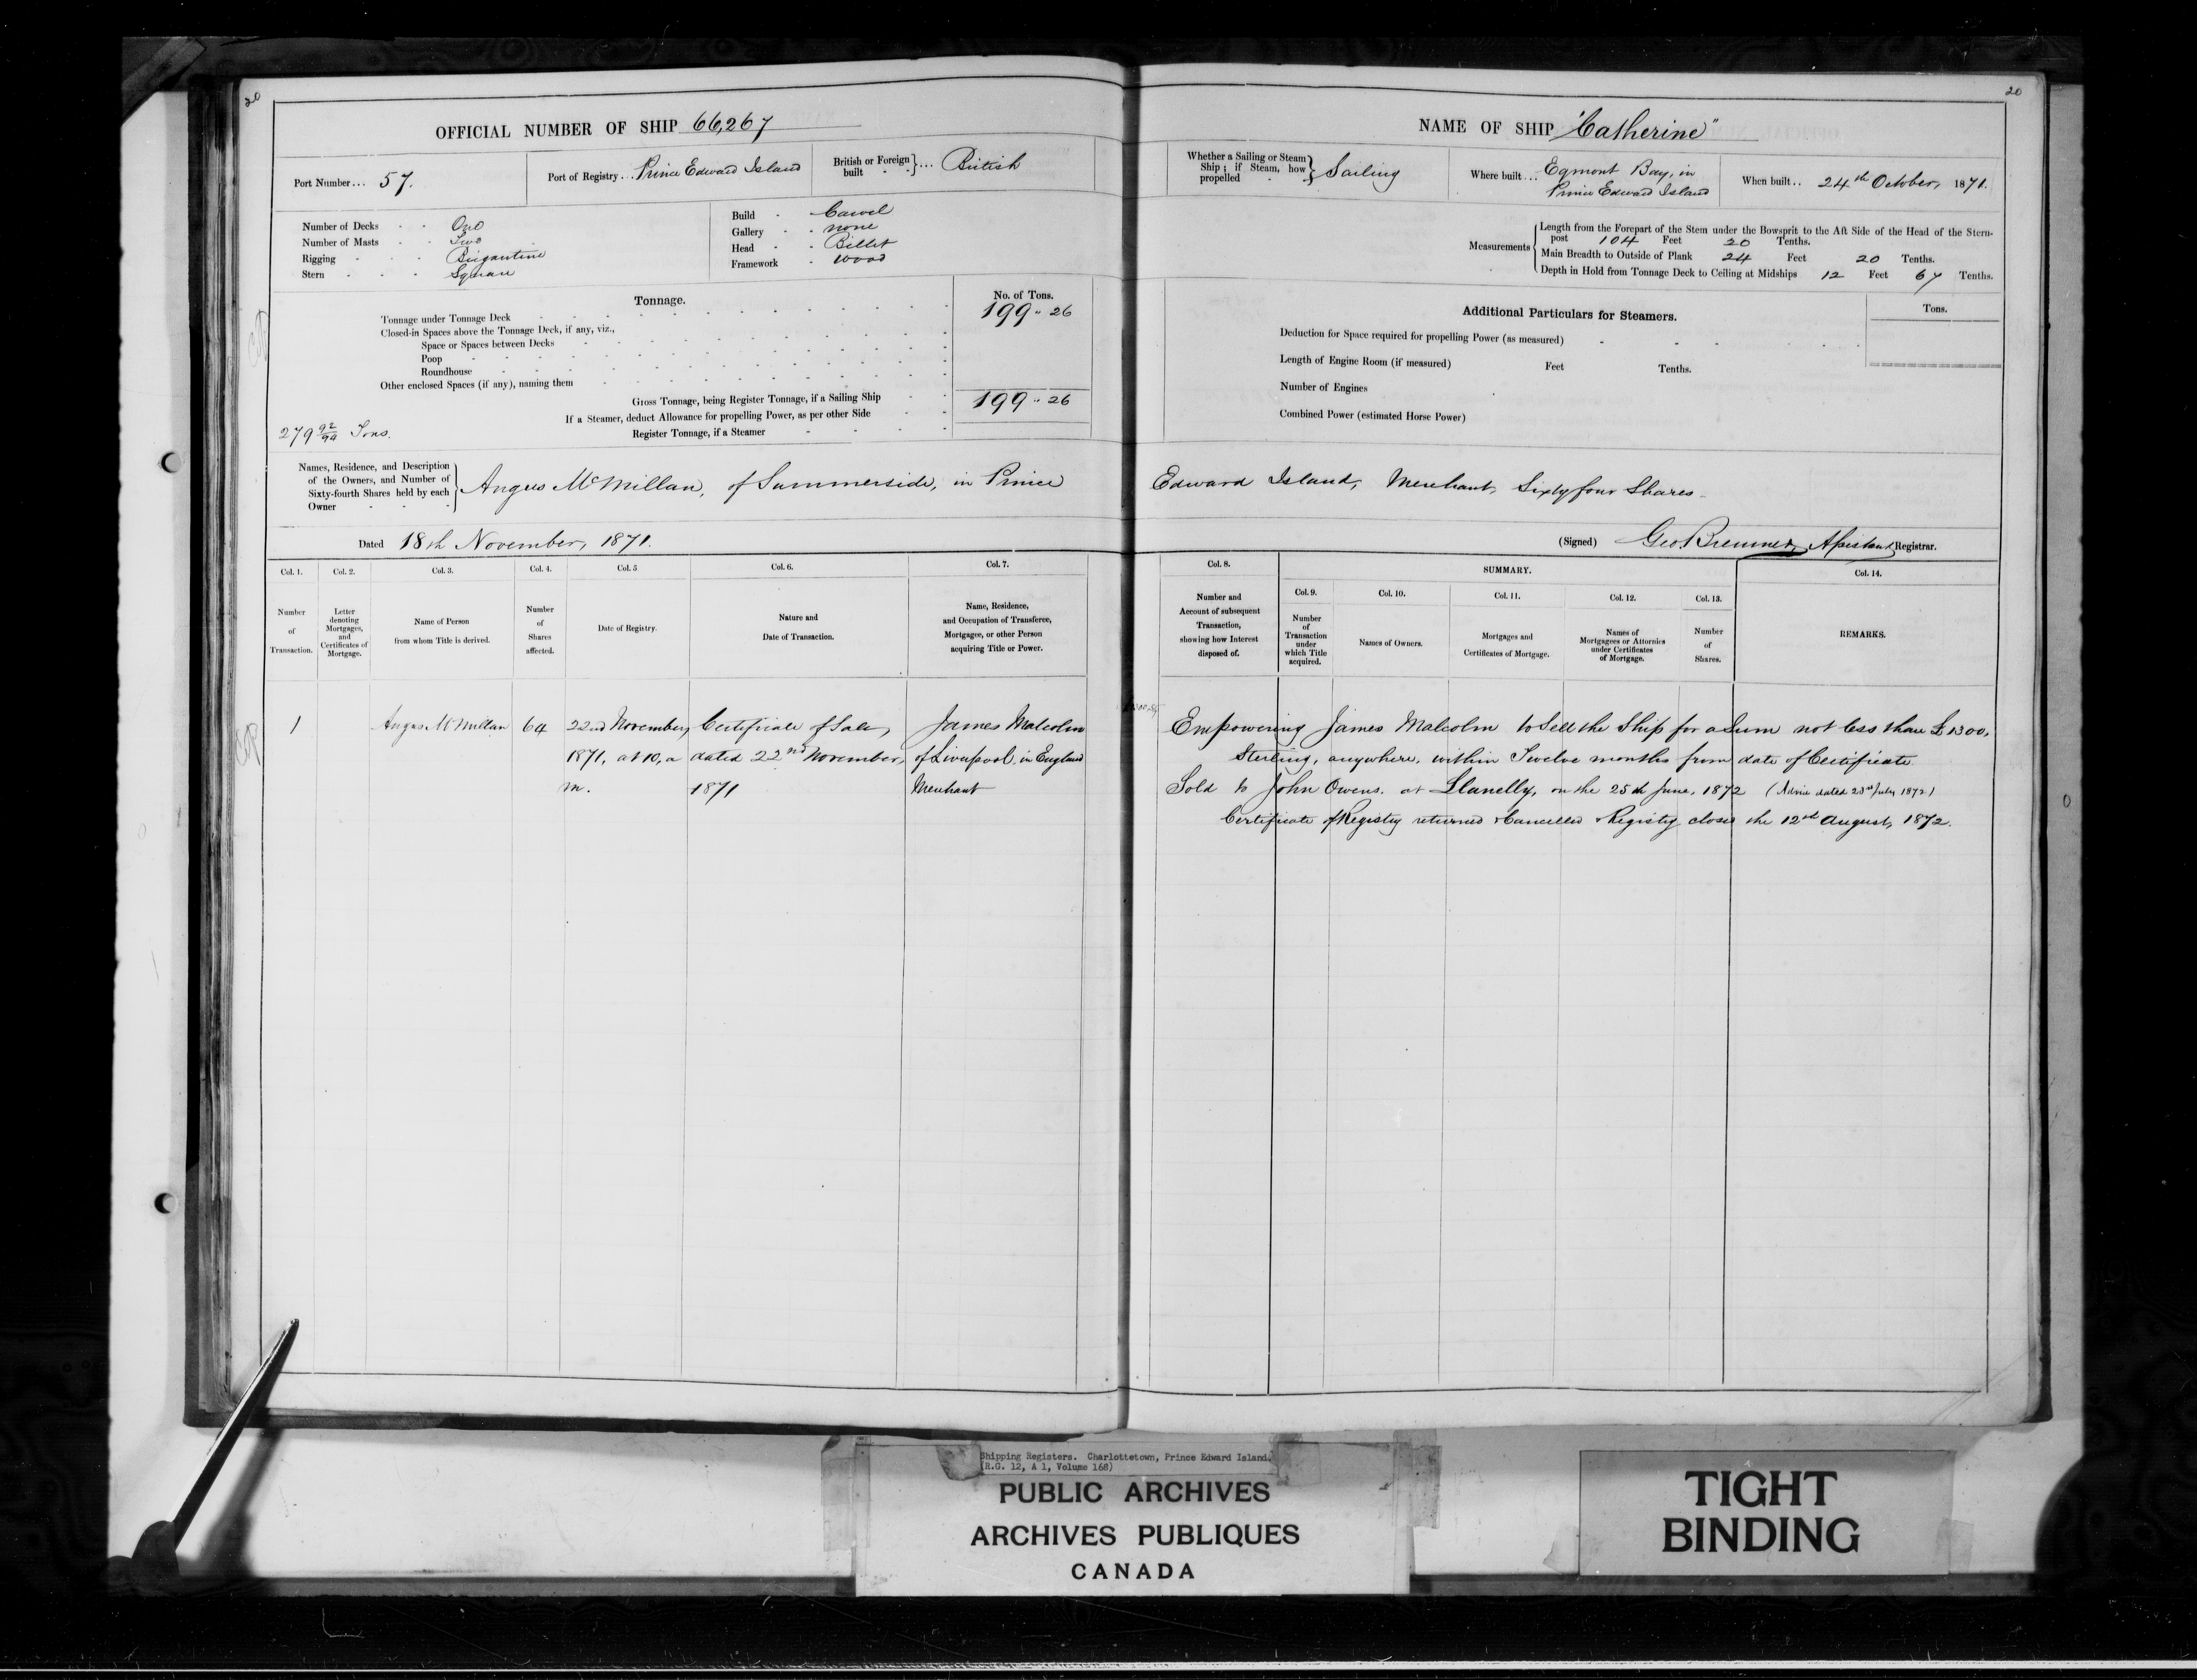 20
OFFICIAL NUMBER OF SHIP 66,267
Port Number... 57.
Port of Registry... Prince Edward Island
British or Foreign built } ... British
Number of Decks One
Number of Masts Two
Rigging Brigantine
Stern Square
Build Carvel
Gallery none
Head Billet
Framework Wood
Tonnage.
No. of Tons.
Tonnage under Tonnage Deck 199 " 26
Closed-in Spaces above the Tonnage Deck, if any, viz.,
Space or Spaces between Decks
Poop
Roundhouse
Other enclosed Spaces (if any), naming them
Gross Tonnage, being Register Tonnage, if a Sailing Ship 199 " 26
If a Steamer, deduct Allowance for propelling Power, as per other Side
Register Tonnage, if a Steamer
279 92/94 Tons.
20
NAME OF SHIP "Catherine"
Whether a Sailing or Steam Ship; if Steam, how propelled } Sailing
Where built ... Egmont Bay, in
Prince Edward Island
When built .. 24th October, 1871.
Measurements
Length from the Forepart of the Stem under the Bowsprit to the Aft Side of the Head of the Stern-
post 104 Feet 20 Tenths.
Main Breadth to Outside of Plank 24 Feet 20 Tenths.
Depth in Hold from Tonnage Deck to Ceiling at Midships 12 Feet 67 Tenths.
Additional Particulars for Steamers.
Tons.
Deduction for Space required for propelling Power (as measured)
Length of Engine Room (if measured) Feet Tenths.
Number of Engines
Combined Power (estimated Horse Power)
Names, Residence, and Description
of the Owners, and Number of
Sixty-fourth Shares held by each
Owner
Angus McMillan, of Summerside, in Prince Edward Island, Merchant, Sixty four Shares.
Dated 18th November, 1871.
(Signed) Geo. Bremner, Assistant Registrar.
Col. 1. Col. 2. Col. 3. Col. 4. Col. 5 Col. 6. Col. 7.
Number of Transaction.
Letter denoting Mortgages, and Certificates of Mortgage.
Name of Person from whom Title is derived.
Number of Shares affected.
Date of Registry.
Nature and Date of Transaction.
Name, Residence, and Occupation of Transferee, Mortgagee, or other Person acquiring Title or Power.
Col. 8.
Number and Account of subsequent Transaction, showing how Interest disposed of.
SUMMARY.
Col. 9. Col. 10. Col. 11. Col. 12. Col. 13.
Number of Transaction under which Title acquired.
Names of Owners.
Mortgages and Certificates of Mortgage.
Names of Mortgagees or Attornies under Certificates of Mortgage.
Number of Shares.
Col. 14.
REMARKS.
1 Angus McMillan 64 22nd November, Certificate of Sale, James Malcolm
1871, at 10, a dated 22nd November, of Liverpool, in England
m. 1871 Merchant
Empowering James Malcolm to Sell the Ship for a Sum not less than £1300,
Sterling, anywhere, within Twelve months from date of Certificate
Sold to John Owens. at Llanelly, on the 25th June, 1872 (Advice dated 23rd July 1872)
Certificate of Registry returned & Cancelled & Registry closed the 12th August, 1872.
Shipping Registers. Charlottetown, Prince Edward Island.
(R.G. 12, A 1, Volume 168)
PUBLIC ARCHIVES
ARCHIVES PUBLIQUES
CANADA
TIGHT
BINDING